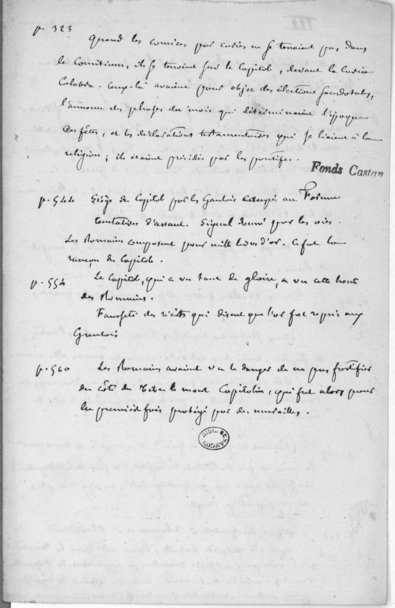 p. 323
Quand les comices par curies ne se tenaient pas dans
le Comitium, ils se tenaient sur le Capitole, devant la Curia
Calabra. Ceux-là avaient pour objet des élections sacerdotales,
l'annonce des phases du mois qui déterminaient l'époque
des fêtes, et les déclarations testamentaires qui se liaient à la
religion ; ils étaient présidés par les pontifes.
Fonds Castan
p. 544 Siège du Capitole par les Gaulois au Forum
tentatives d'assaut. Signal donné par les oies.
Les Romains composent pour mille livres d'or. Ce fut la
rançon du Capitole.
p. 554 Le Capitole, qui a vu tant de gloire, a vu cette honte
des Romains.
Fausseté des récits qui disent que l'or fut repris aux
Gaulois
p. 560 Les Romains avaient vu le danger de ne pas fortifier
du côté du Tibre le mont Capitolin, qui fut alors pour
la première fois protégé par des murailles.